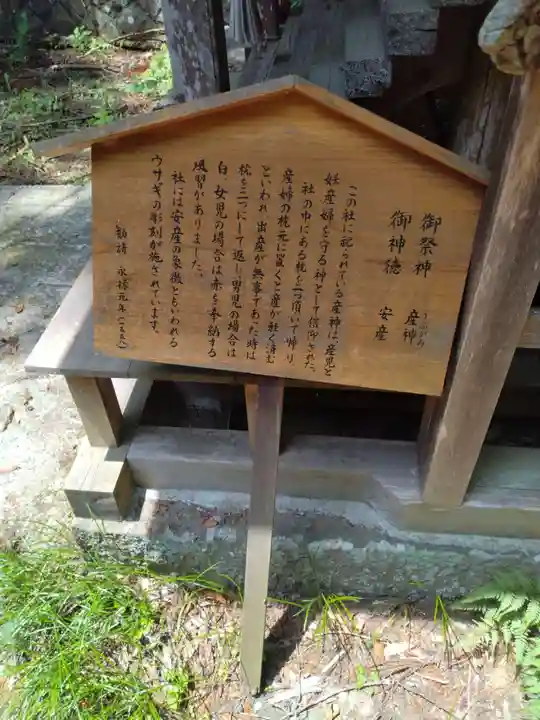 御祭神　産神
うぶがみ
御神徳　安産
この社に祀られている産神は、産児と
妊産婦を守る神として信仰された。
社の中にある枕を一つ頂いて帰り、
産婦の枕元に置くと産が軽く済む
といわれ、出産が無事であった時は
枕を二つにして返し、男児の場合は
白、女児の場合は赤を奉納する
風習がありました。
社には安産の象徴ともいわれる
ウサギの彫刻が施されています。
勧請　永禄元年